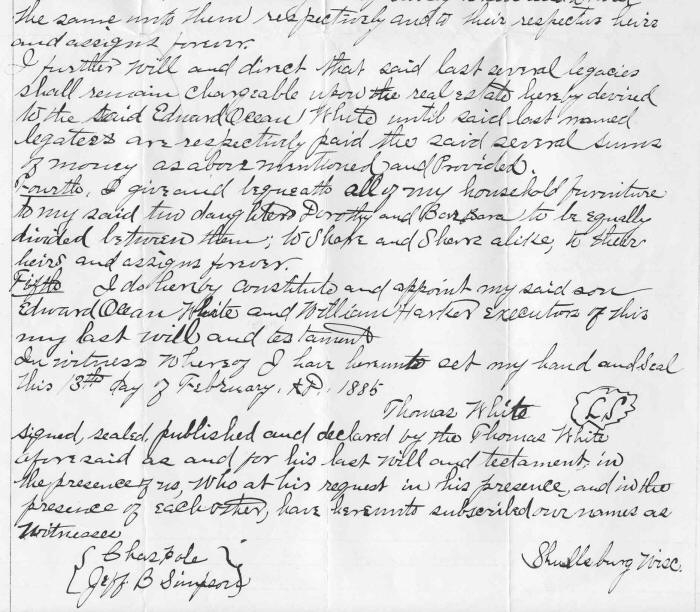 the same unto them respectively and to their respective heirs
and assigns forever.
I further will and direct that said last several legacies
shall remain chargeable upon the real estate hereby devised
to the said Edward Ocean White until said last named
legatees are respectively paid the said several sums
of money as above mentioned and Provided.
Fourth. I give and bequeath all of my household furniture
to my said two daughters Dorothy and Barbara to be equally
divided between them; to Share and Share alike, to their
heirs and assigns forever.
Fifth I do hereby constitute and appoint my said son
Edward Ocean White and William Harker Executors of this
my last will and testament
In witness Whereof I have hereunto set my hand and Seal
this 13th day of February, A.D. 1885
Thomas White LS
signed, sealed, published and declared by the Thomas White
aforesaid as and for his last will and testament, in
the presence of us, who at his request in his presence, and in the
presence of each other, have hereunto subscribed our names as
witnesses
Chas Pole
Jeff. B Simpson
Shullsburg Wisc.